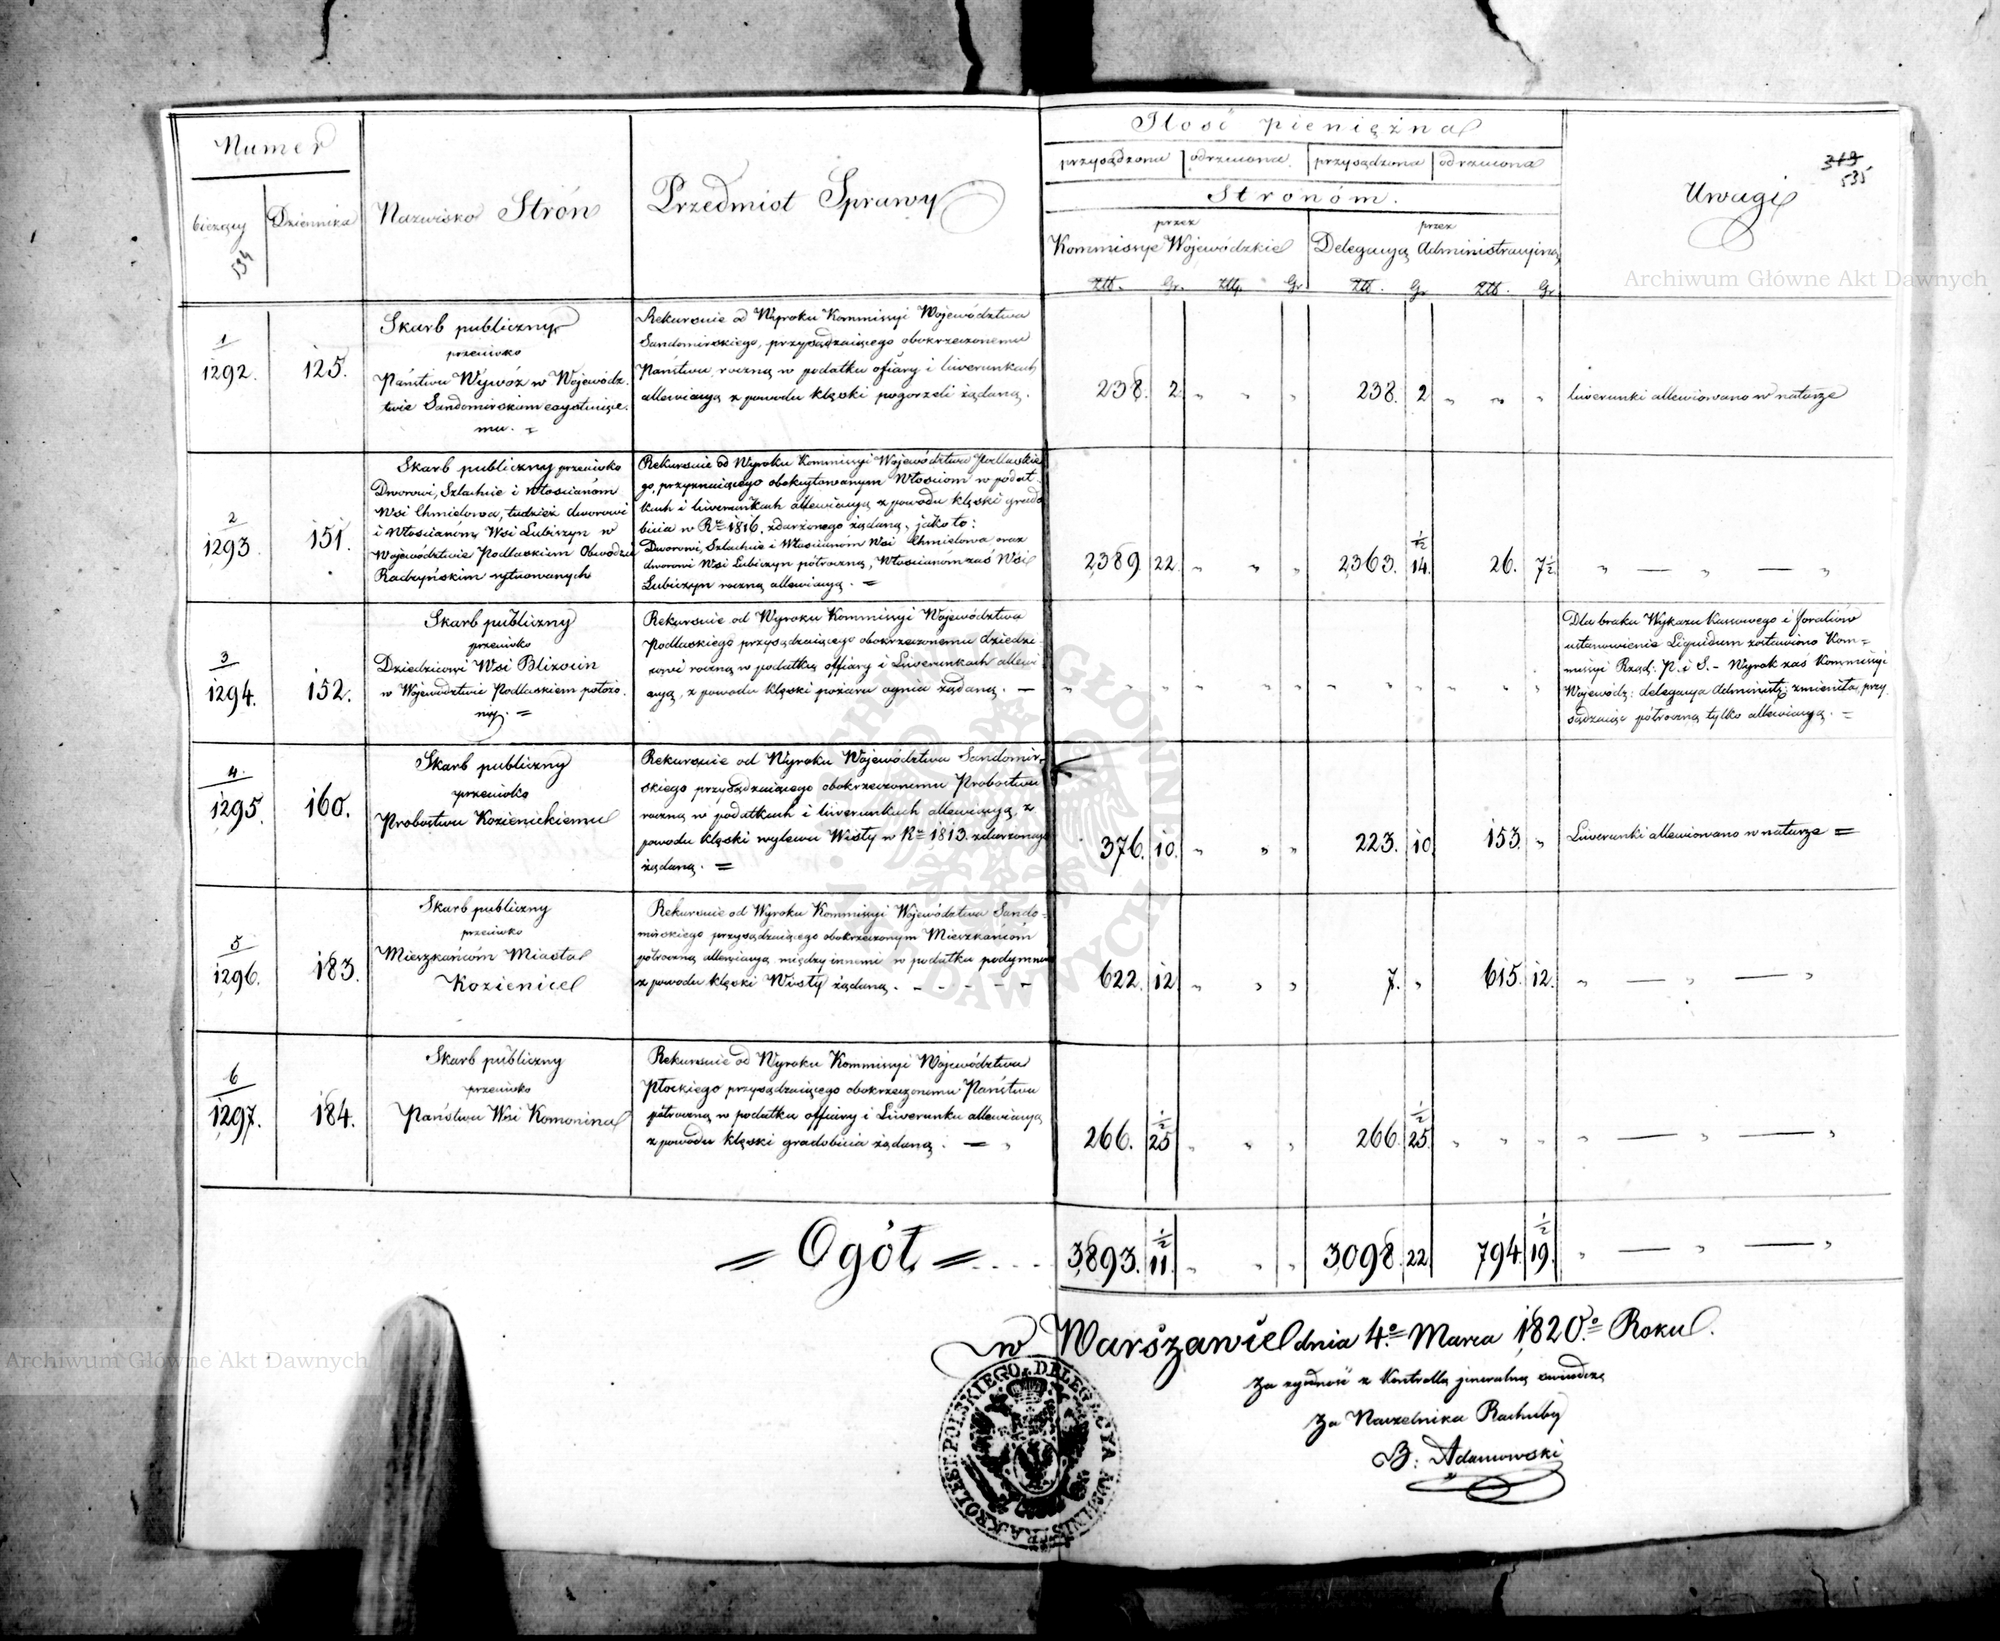 Numer
bieżący
Dziennika
Nazwisko Strón
Przedmiot Sprawy
Ilość pieniężna
przysądzona odrzucona przysądzona odrzucona
Stronóm.
przez
Kommissye Wojewódzkie
przez
Delegacyą Administracyiną
Złł. Gr. Złł. Gr. Złł. Gr. Złł. Gr.
Uwagi
319
535
534
1
1292.
125.
Skarb publiczny
przeciwko
Państwu Wywóz w Wojewódz-
twie Sandomirskiem exystuiące-
mu.
Rekursuie od Wyroku Kommissyi Województwa
Sandomirskiego, przysądzaiącego obokrzeczonemu
Państwu, roczną w podatku ofiary i liwerunkach
allewiacyą z powodu klęski pogorzeli żądaną.
238. 2 " " " 238. 2 " " "
liwerunki allewiowano w naturze
2
1293.
151.
Skarb publiczny przeciwko
Dworowi, Szlachcie i Włościanóm
Wsi Chmielowa, tudzież dworowi
i Włościanóm Wsi Lubiczyn w
Województwie Podlaskiem Obwodzie
Radzyńskim sytuowanych
Rekursuie od Wyroku Kommissyi Województwa Podlaskie
go, przyznaiącego obokcytowanym Włościom w podat-
kach i liwerunkach allewiacyą z powodu klęski grado
bicia w Rku 1816. zdarzonego żądaną, jako to:
Dworowi, Szlachcie i Włościanóm Wsi Chmielowa oraz
dworowi Wsi Lubiczyn półroczną, Włościanóm zaś Wsi
Lubiczyn roczną allewiacyą. =
2389 22. " " " 2363. 14. 1/2 26. 7 1/2
" — " — "
3
1294.
152.
Skarb publiczny
przeciwko
Dziedzicowi Wsi Blizocin
w Województwie Podlaskiem położo-
néj. =
Rekursuie od Wyroku Kommissyi Województwa
Podlaskiego przysądzaiącego obokrzeczonemu dziedzi-
cowi roczną w podatku offiary i Liwerunkach allewi
acyą, z powodu klęski pożaru ognia żądaną. —
" " " " " " " " "
Dla braku Wykazu Kassowego i foraliów
ustanowienie Liquidum zostawiono Kom=
missyi Rząd: P. i S. - Wyrok zaś Kommissyi
Wojewódz: delegacya Administ: zmieniła, przy
sądzaiąc półroczną tylko allewiacyą. =
4.
1295.
160.
Skarb publiczny
przeciwko
Probostwu Kozienickiemu
Rekursuie od Wyroku Województwa Sandomir-
skiego przysądzaiącego obokrzeczonemu Probostwu
roczną w podatkach i liwerunkach allewiacyą, z
powodu klęski wylewu Wisły w Rku 1813. zdarzonego
żądaną. =
376. 10. " " " 223. 10 153. "
Liwerunki allewiowano w naturze =
5
1296.
183.
Skarb publiczny
przeciwko
Mieszkańcóm Miasta
Kozienice
Rekursuie od Wyroku Kommissyi Województwa Sando-
mirskiego przysądzaiącego obokrzeczonym Mieszkańcóm
półroczną allewiacyą między innemi w podatku podymnem
z powodu klęski Wisły żądaną. - - - - -
622. 12 " " " 7. " 615. 12.
" — " — "
6
1297.
184.
Skarb publiczny
przeciwko
Państwu Wsi Komonina
Rekursuie od Wyroku Kommissyi Województwa
Płockiego przysądzaiącego obokrzeczonemu Państwu
półroczną w podatku offiary i Liwerunku allewiacyą
z powodu klęski gradobicia żądaną. — "
266. 25 1/2 " " " 266. 25. 1/2 " " "
" — " — "
= Ogół = . . . .
3893. 11. 1/2 " " " 3098. 22 794. 19. 1/2
" — " — "
w Warszawie dnia 4o. Marca 1820o. Roku.
Za zgodność z Kontrollą jeneralną świadczę
Za Naczelnika Rachuby
B. Adamowski
KROLEST. POLSKIEGO. DELEGACYA ADMINISTRA.
Archiwum Główne Akt Dawnych
Archiwum Główne Akt Dawnych
ARCHIWUM GŁÓWNE AKT DAWNYCH